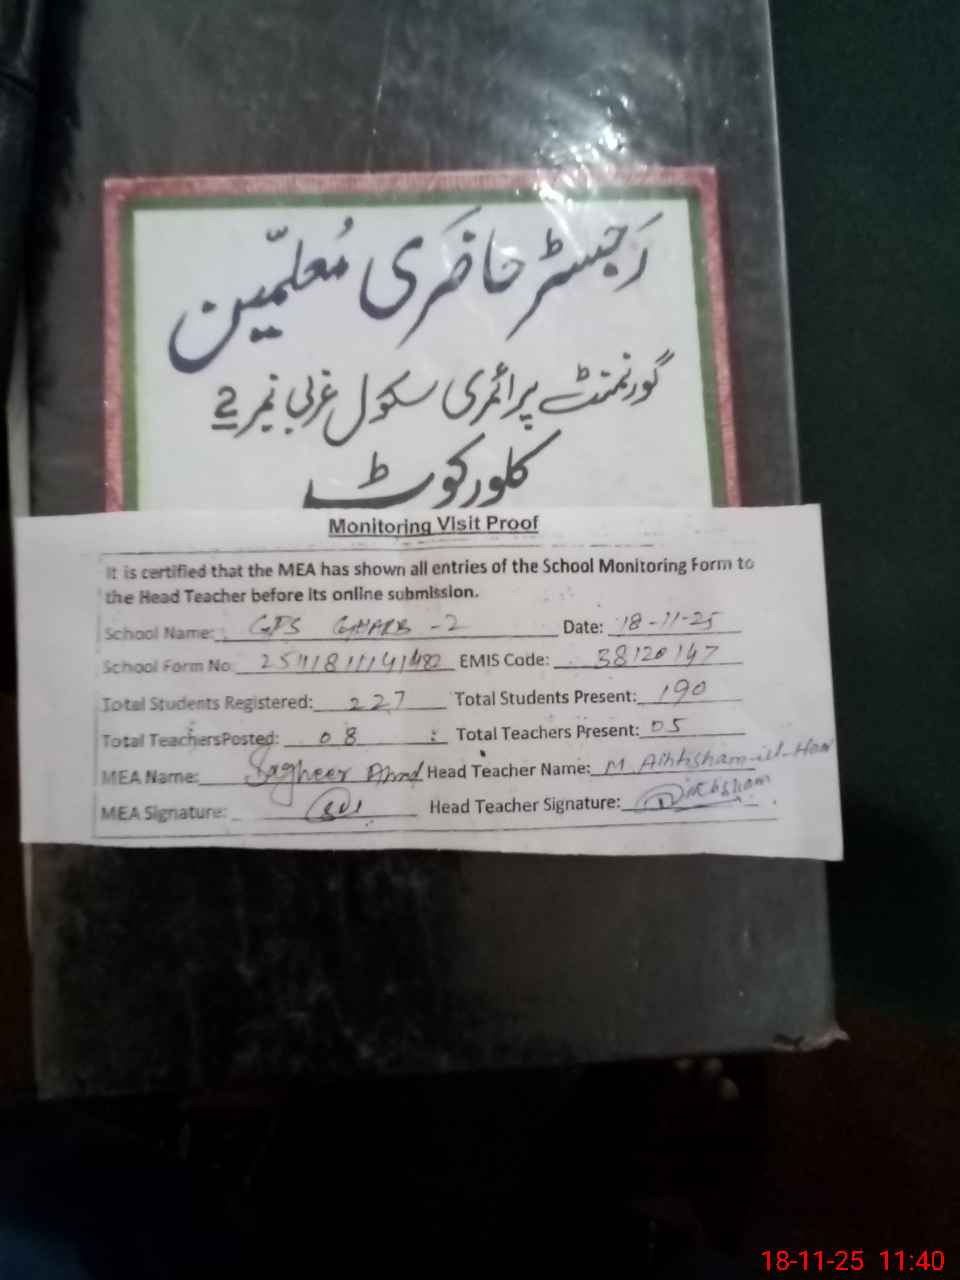 رجسٹر حاضری معلّمین
گورنمنٹ پرائمری سکول غربی نمبر 2
کلورکوٹ
Monitoring Visit Proof
It is certified that the MEA has shown all entries of the School Monitoring Form to
the Head Teacher before its online submission.
School Name: GPS GHARB - 2 Date: 18-11-25
School Form No: EMIS Code: 38120147
Total Students Registered: 227 Total Students Present: 190
Total TeachersPosted: 08 Total Teachers Present: 05
MEA Name: Sagheer Ahmd Head Teacher Name: M.
MEA Signature: Head Teacher Signature:
18-11-25 11:40